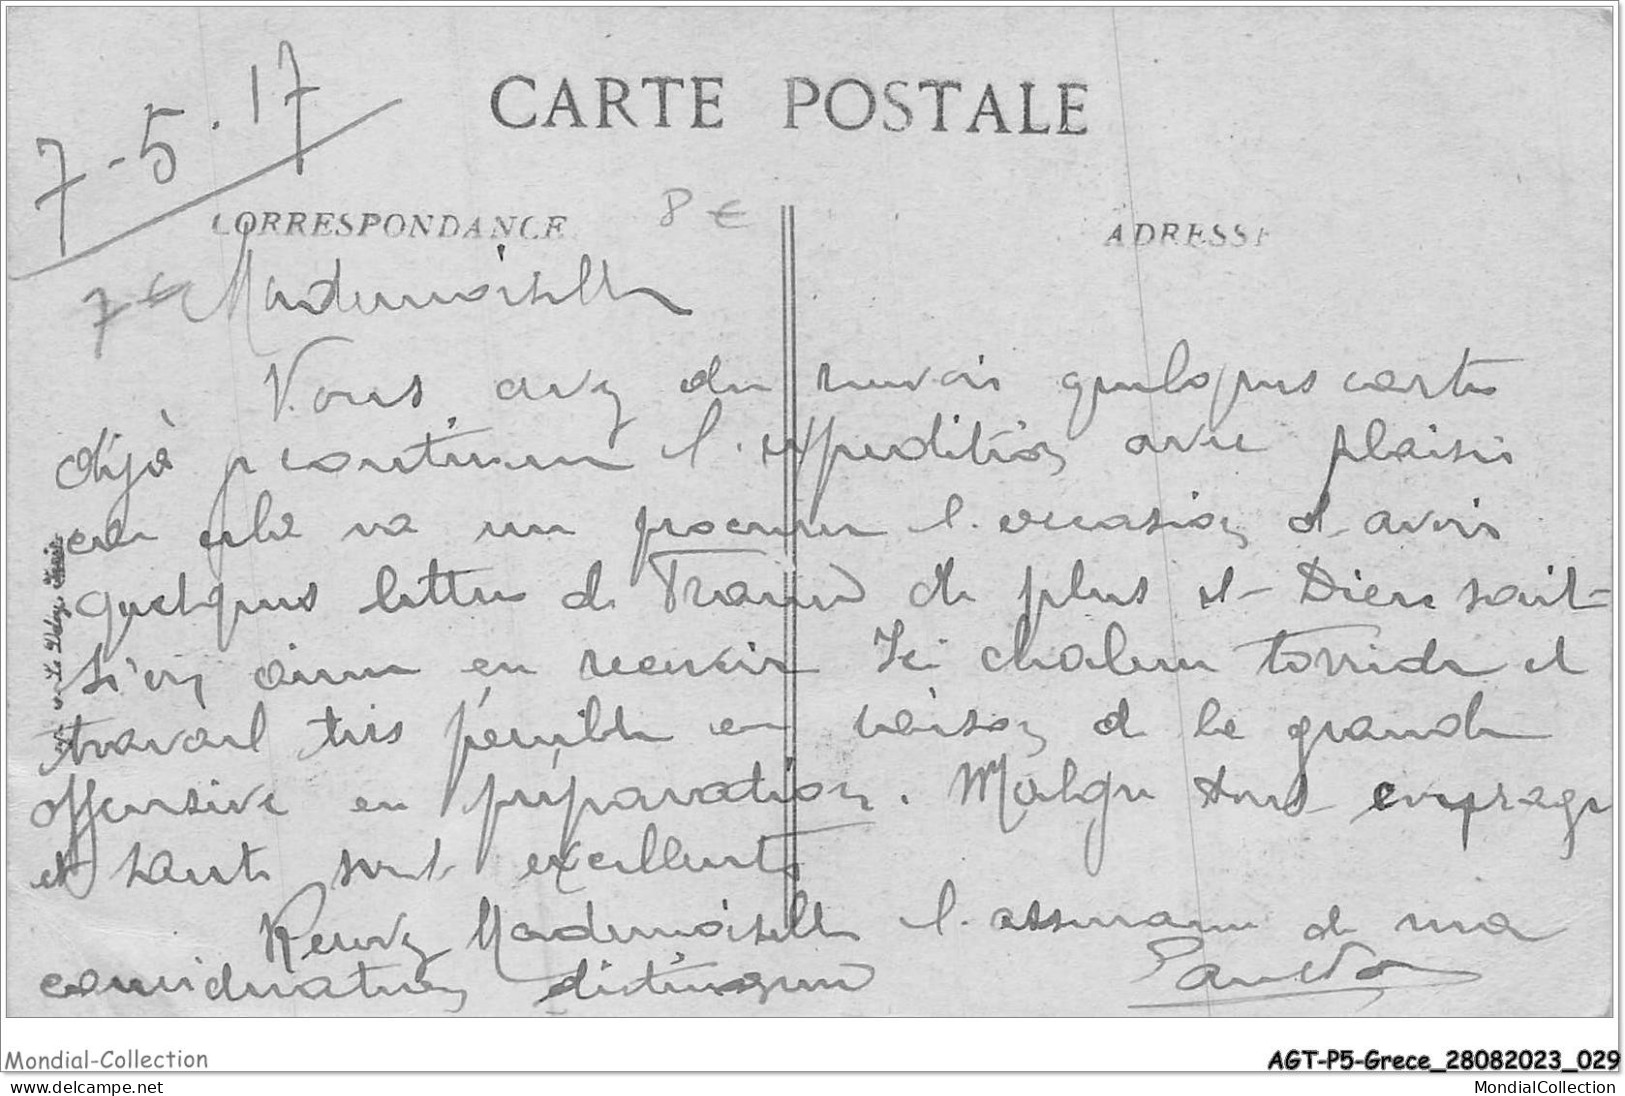 7-5.17
CARTE POSTALE
CORRESPONDANCE
8 €
ADRESSE
7 €
Mademoiselle
Vous avez du recevoir quelques cartes
déjà je continue l'expedition avec plaisir
car cela va me procurer l'occasion d'avoir
quelques lettres de France de plus et Dieu sait
si on aime en recevoir Ici chaleur torride et
travail très pénible en raison de la grande
offensive en préparation. Malgré tout courage
et santé sont excellents
Recevez Mademoiselle l'assurance de ma
consideration distinguée
Mondial-Collection
AGT-P5-Grece_28082023_029
delcampe.net
MondialCollection